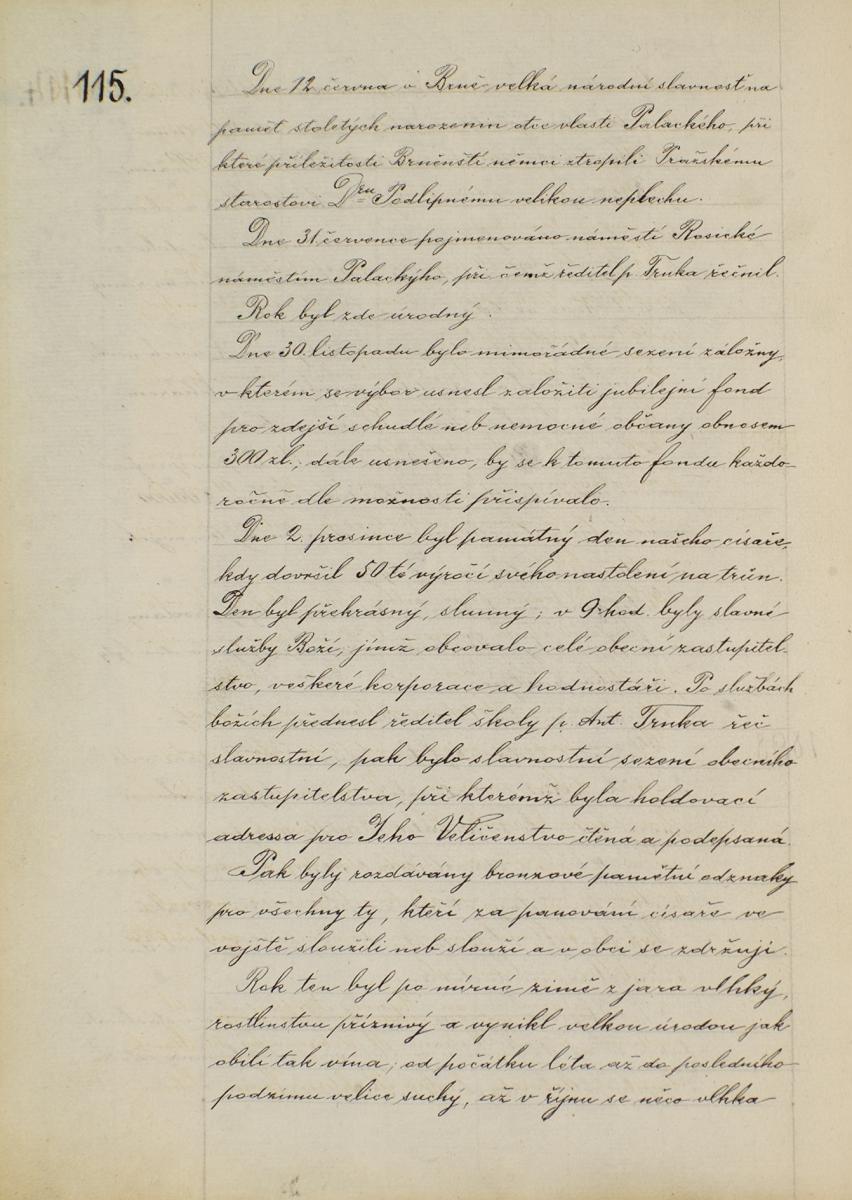 115.
Dne 12 června v Brně velká národní slavnost na
paměť stoletých narozenin otce vlasti Palackého, při
které příležitosti Brněnští němci ztropili Pražskému
starostovi Dru Podlipnému velikou neplechu.
Dne 31. července pojmenováno náměstí Rosické
náměstím Palackýho, při čemž ředitel p. Trnka řečnil.
Rok byl zde úrodný.
Dne 30. listopadu bylo mimořádné sezení záložny,
v kterém se výbor usnesl založiti jubilejní fond
pro zdejší schudlé neb nemocné občany obnosem
300 zl.; dále usnešeno, by se k tomuto fondu každo-
ročně dle možnosti přispívalo.
Dne 2. prosince byl památný den našeho císaře,
kdy dovršil 50 té výročí svého nastolení na trůn.
Den byl překrásný, slunný; v 9 hod. byly slavné
služby Boží, jimž obcovalo celé obecní zastupitel-
stvo, veškeré korporace a hodnostáři. Po službách
božích přednesl ředitel školy p. Ant. Trnka řeč
slavnostní, pak bylo slavnostní sezení obecního
zastupitelstva, při kterémž byla holdovací
adressa pro Jeho Veličenstvo čtěná a podepsaná.
Pak byly rozdávány bronzové pamětní odznaky
pro všechny ty, kteří za panování císaře ve
vojště sloužili neb slouží a v obci se zdržují.
Rok ten byl po mírné zimě z jara vlhký,
rostlinstvu příznivý a vynikl velkou úrodou jak
obilí tak vína; od počátku léta až do posledního
podzimu velice suchý, až v říjnu se něco vlhka